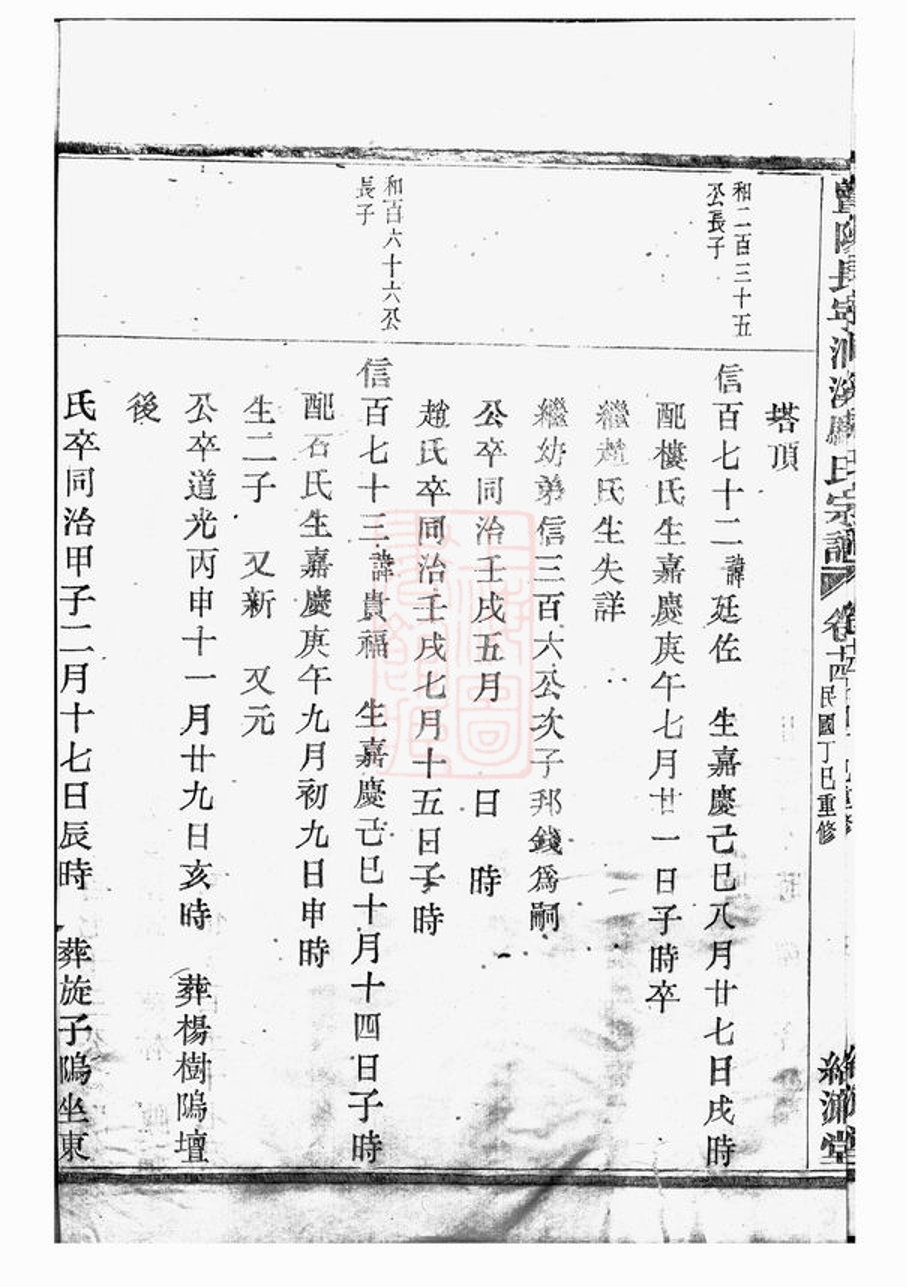 氏宗譜 卷十四 民國丁巳重修
塔頂
和二百三十五
公長子
信百七十二 諱廷佐 生嘉慶己巳八月廿七日戌時
配樓氏生嘉慶庚午七月廿一日子時卒
繼趙氏生失詳
繼幼弟信三百六公次子邦錢爲嗣
公卒同治壬戌五月 日 時
趙氏卒同治壬戌七月十五日子時
和百六十六公
長子
信百七十三 諱貴福 生嘉慶己巳十月十四日子時
配石氏生嘉慶庚午九月初九日申時
生二子 又新 又元
公卒道光丙申十一月廿九日亥時 葬楊樹隝壇
後
氏卒同治甲子二月十七日辰時 葬旋子隝坐東